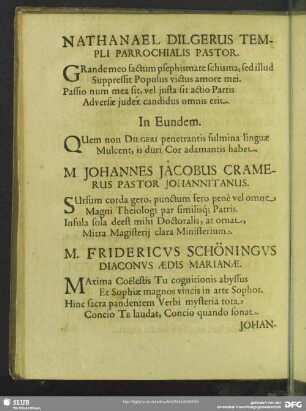 NATHANAEL DILGERUS TEM-
PLI PARROCHIALIS PASTOR.
GRande meo factum psephismate schisma, sed illud
Suppressit Populus victus amore mei.
Passio num mea sit, vel justa sit actio Partis
Adversæ judex candidus omnis erit.
In Eundem.
QUem non DILGERI penetrantis fulmina linguæ
Mulcent, is duri Cor adamantis habet.
M JOHANNES JACOBUS CRAME-
RUS PASTOR JOHANNITANUS.
SUrsum corda gero, punctum fero penè vel omne
Magni Theiologi par similisq; Patris.
Insula sola deest mihi Doctoralis, at ornat,
Mitra Magisterij clara Ministerium.
M. FRIDERICVS SCHÖNINGVS
DIACONVS ÆDIS MARIANÆ.
MAxima Coëlestis Tu cognitionis abyssus
Et Sophiæ magnos vincis in arte Sophos.
Hinc sacra pandentem Verbi mysteria tota
Concio Te laudat, Concio quando sonat.
JOHAN-
SLUB
Wir führen Wissen.
DFG